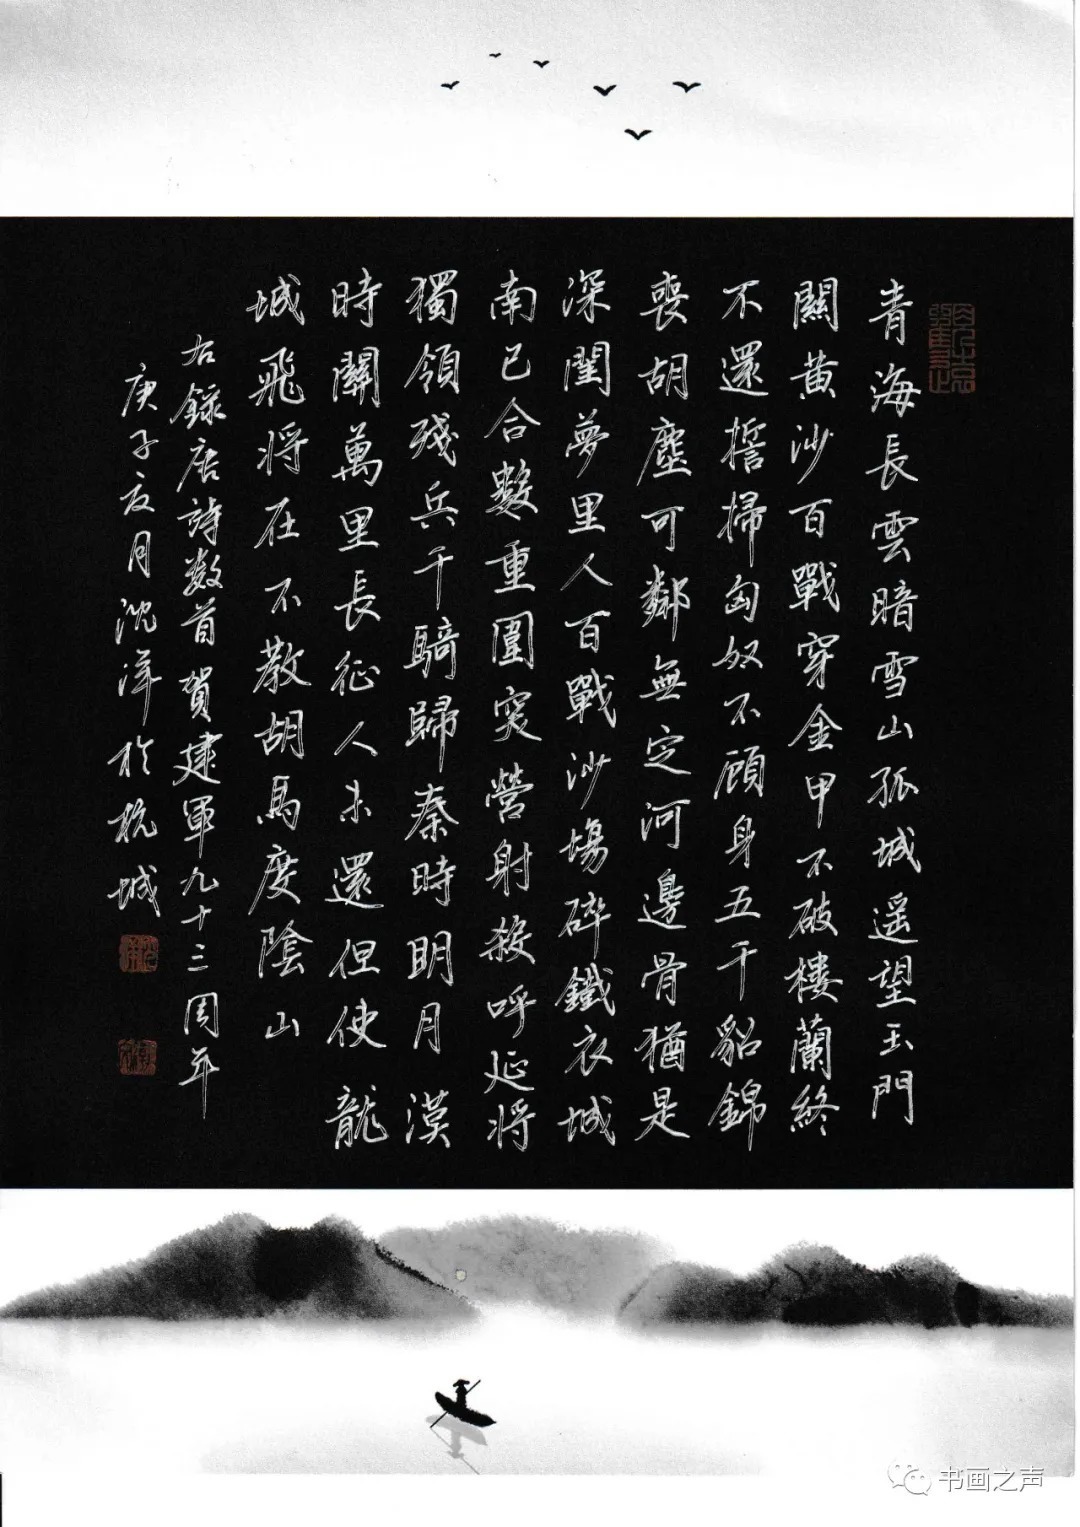 青海長雲暗雪山孤城遥望玉門
關黄沙百戰穿金甲不破樓蘭終
不還誓掃匈奴不顧身五千貂錦
喪胡塵可鄰無定河邊骨猶是
深閨夢里人百戰沙場碎鐵衣城
南已合數重圍突營射殺呼延将
獨領残兵千騎歸秦時明月漢
時關萬里長征人未還但使龍
城飛将在不教胡馬度陰山
右錄唐詩数首賀建軍九十三周年
庚子夜月沈洋於杭城
书画之声